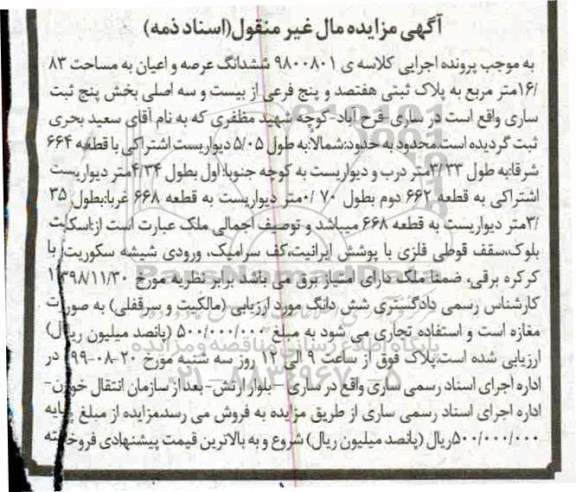 آگهی مزایده مال غیر منقول(اسناد ذمه)
به موجب پرونده اجرایی کلاسه ی ۹۸۰۰۸۰۱ ششدانگ عرصه و اعیان به مساحت ۸۳
/۱۶متر مربع به پلاک ثبتی هفتصد و پنج فرعی از بیست و سه اصلی بخش پنج ثبت
ساری واقع است در ساری-فرح آباد-کوچه شهید مظفری که به نام آقای سعید بحری
ثبت گردیده است.محدود به حدود:شمالا:به طول ۵/۰۵ دیواریست اشتراکی با قطعه ۶۶۴
شرقا:به طول ۳/۳۳متر درب و دیواریست به کوچه جنوبا:اول بطول ۴/۳۴متر دیواریست
اشتراکی به قطعه ۶۶۲ دوم بطول ۷۰ /۰متر دیواریست به قطعه ۶۶۸ غربا:بطول ۳۵
/۳متر دیواریست به قطعه ۶۶۸ میباشد و توصیف اجمالی ملک عبارت است از:اسکلت
بلوک،سقف قوطی فلزی با پوشش ایرانیت،کف سرامیک، ورودی شیشه سکوریت با
کرکره برقی، ضمنا ملک دارای امتیاز برق می باشد برابر نظریه مورخ ۱۳۹۸/۱۱/۳۰
کارشناس رسمی دادگستری شش دانگ مورد ارزیابی (مالکیت و سرقفلی) به صورت
مغازه است و استفاده تجاری می شود به مبلغ ۵۰۰/۰۰۰/۰۰۰ (پانصد میلیون ریال)
ارزیابی شده است.پلاک فوق از ساعت ۹ الی ۱۲ روز سه شنبه مورخ ۲۰-۰۸-۹۹ در
اداره اجرای اسناد رسمی ساری واقع در ساری - بلوار ارتش- بعد از سازمان انتقال خون-
اداره اجرای اسناد رسمی ساری از طریق مزایده به فروش می رسد.مزایده از مبلغ پایه
۵۰۰/۰۰۰/۰۰۰ریال (پانصد میلیون ریال) شروع و به بالاترین قیمت پیشنهادی فروخته
ParsNamadData
پایگاه اطلاع رسانی مناقصه و مزایده
۰۲۱-۸۸۳۴۹۶۷۰-۵